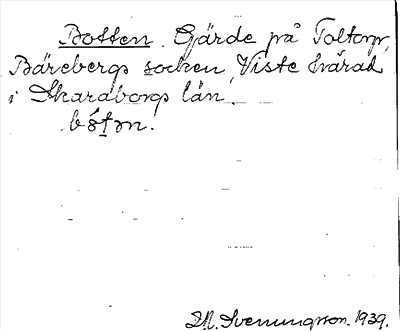 Botten. Gärde på Toltorp,
Bärebergs socken, Viste härad
i Skaraborgs län.
bótn.
M. Svenungsson. 1939.